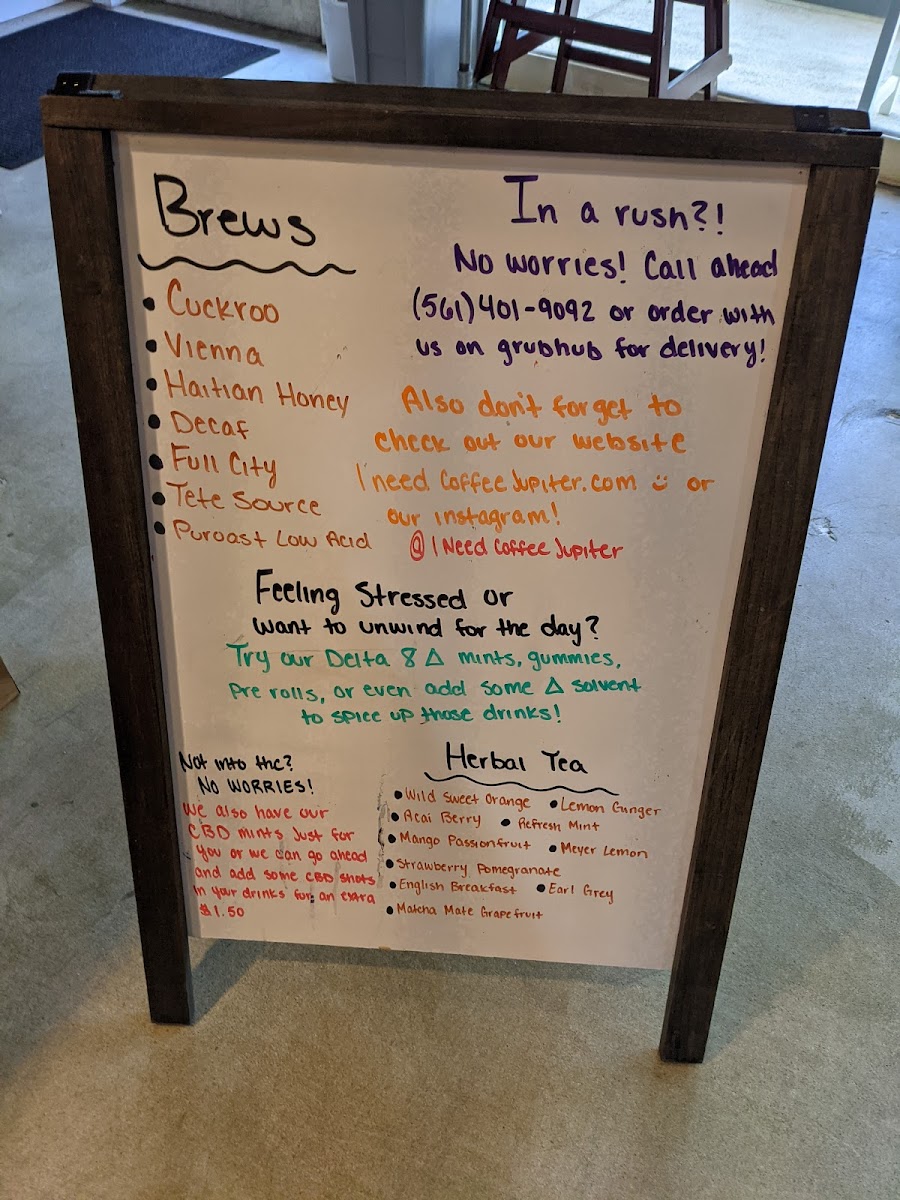 Brews
Cuckroo
Vienna
Haitian Honey
Decaf
Full City
Tete Source
Puroast Low Acid
In a rush?!
No worries! Call ahead
(561)401-9092 or order with
us on grubhub for delivery!
Also don't forget to
check out our website
I need CoffeeJupiter.com ü or
our instagram!
@ I Need Coffee Jupiter
Feeling Stressed or
want to unwind for the day?
Try our Delta 8 Δ mints, gummies,
pre rolls, or even add some Δ solvent
to spice up those drinks!
Not into thc?
No WORRIES!
We also have our
CBD mints Just for
you or we can go ahead
and add some CBD shots
in your drinks for an extra
$1.50
Herbal Tea
Wild Sweet Orange • Lemon Gunger
Acai Berry • Refresh Mint
Mango Passionfruit • Meyer Lemon
Strawberry Pomegranate
English Breakfast • Earl Grey
Matcha Mate Grapefruit